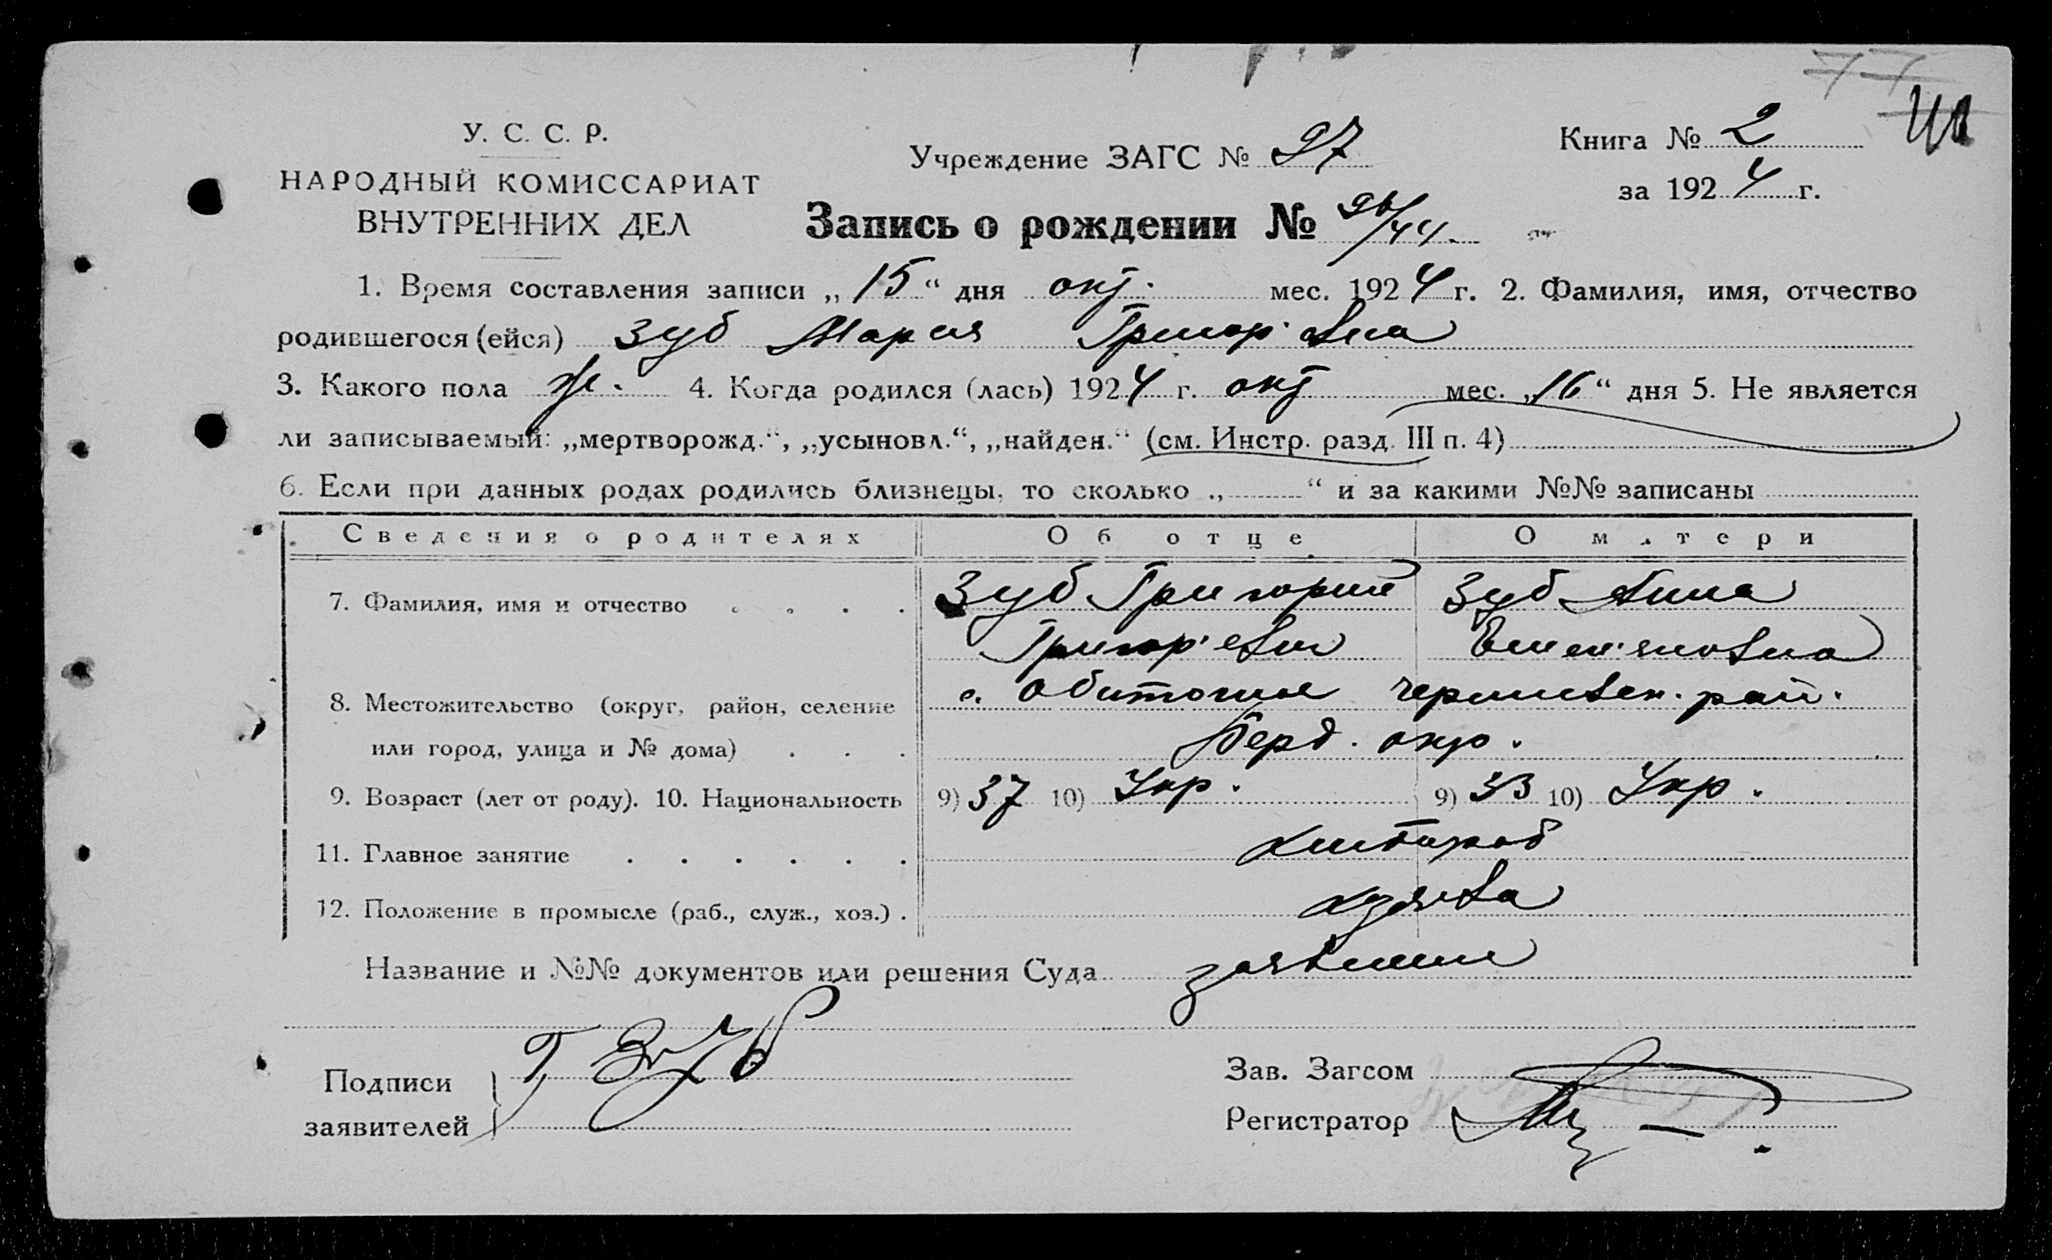 77
У. С. С. Р.
НАРОДНЫЙ КОМИССАРИАТ
ВНУТРЕННИХ ДЕЛ
Учреждение ЗАГС № 27
Книга № 2
за 1924 г.
Запись о рождении № 26/44.
1. Время составления записи „15“ дня окт. мес. 1924 г. 2. Фамилия, имя, отчество
родившегося (ейся) Зуб Мария Григор'евна
3. Какого пола ж. 4. Когда родился (лась) 1924 г. окт мес. „16“ дня 5. Не является
ли записываемый: „мертворожд.“, „усыновл.“, „найден.“ (см. Инстр. разд. III п. 4)
6. Если при данных родах родились близнецы, то сколько „ “ и за какими №№ записаны
Сведения о родителях Об отце О матери
7. Фамилия, имя и отчество . . . . Зуб Григорий Зуб Анна
Григор'евич Емел'яновна
8. Местожительство (округ, район, селение с. Обиточное Черниговск. рай.
или город, улица и № дома) . . . Берд. окр.
9. Возраст (лет от роду). 10. Национальность 9) 37 10) Укр. 9) 33 10) Укр.
11. Главное занятие . . . . . . хлебороб
12. Положение в промысле (раб., служ., хоз.) . хозяева
Название и №№ документов или решения Суда заявление
Подписи
заявителей
Г Зуб
Зав. Загсом
Регистратор